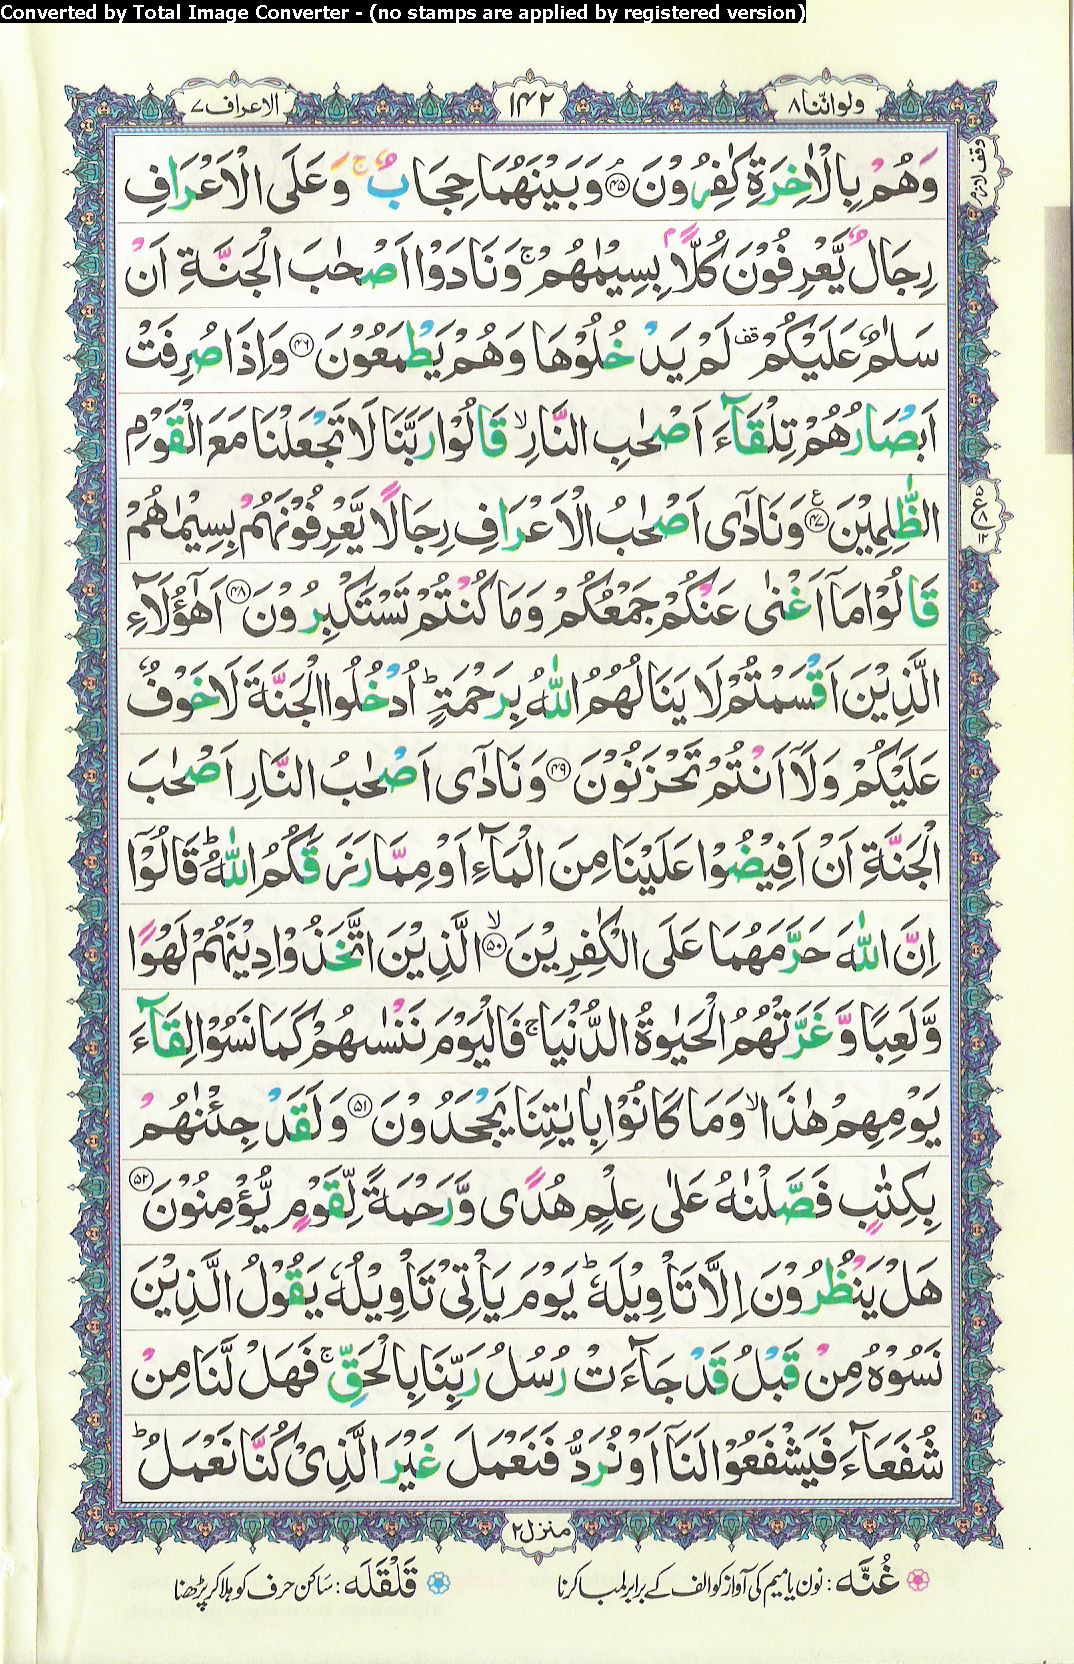 Converted by Total Image Converter - (no stamps are applied by registered version)
ولواننا ٨
١٤٢
الاعراف ٧
وقف لازم
وَهُمْ بِالْاٰخِرَةِ كٰفِرُوْنَ ۘ﴿۴۵﴾ وَبَيْنَهُمَا حِجَابٌ ۚ وَعَلَى الْاَعْرَافِ
رِجَالٌ يَّعْرِفُوْنَ كُلًّاۢ بِسِيْمٰىهُمْ ۚ وَنَادَوْا اَصْحٰبَ الْجَنَّةِ اَنْ
سَلٰمٌ عَلَيْكُمْ ۫ لَمْ يَدْخُلُوْهَا وَهُمْ يَطْمَعُوْنَ ﴿۴۶﴾ وَاِذَا صُرِفَتْ
اَبْصَارُهُمْ تِلْقَآءَ اَصْحٰبِ النَّارِ ۙ قَالُوْا رَبَّنَا لَا تَجْعَلْنَا مَعَ الْقَوْمِ
الظّٰلِمِيْنَ ﴿۴۷﴾ وَنَادٰٓى اَصْحٰبُ الْاَعْرَافِ رِجَالًا يَّعْرِفُوْنَهُمْ بِسِيْمٰىهُمْ
ع
قَالُوْا مَآ اَغْنٰى عَنْكُمْ جَمْعُكُمْ وَمَا كُنْتُمْ تَسْتَكْبِرُوْنَ ﴿۴۸﴾ اَهٰٓؤُلَآءِ
الَّذِيْنَ اَقْسَمْتُمْ لَا يَنَالُهُمُ اللّٰهُ بِرَحْمَةٍ ؕ اُدْخُلُوا الْجَنَّةَ لَا خَوْفٌ
عَلَيْكُمْ وَلَآ اَنْتُمْ تَحْزَنُوْنَ ﴿۴۹﴾ وَنَادٰٓى اَصْحٰبُ النَّارِ اَصْحٰبَ
الْجَنَّةِ اَنْ اَفِيْضُوْا عَلَيْنَا مِنَ الْمَآءِ اَوْ مِمَّا رَزَقَكُمُ اللّٰهُ ؕ قَالُوْٓا
اِنَّ اللّٰهَ حَرَّمَهُمَا عَلَى الْكٰفِرِيْنَ ۙ﴿۵۰﴾ الَّذِيْنَ اتَّخَذُوْا دِيْنَهُمْ لَهْوًا
وَّلَعِبًا وَّغَرَّتْهُمُ الْحَيٰوةُ الدُّنْيَا ۚ فَالْيَوْمَ نَنْسٰىهُمْ كَمَا نَسُوْا لِقَآءَ
يَوْمِهِمْ هٰذَا ۙ وَمَا كَانُوْا بِاٰيٰتِنَا يَجْحَدُوْنَ ﴿۵۱﴾ وَلَقَدْ جِئْنٰهُمْ
بِكِتٰبٍ فَصَّلْنٰهُ عَلٰى عِلْمٍ هُدًى وَّرَحْمَةً لِّقَوْمٍ يُّؤْمِنُوْنَ ﴿۵۲﴾
هَلْ يَنْظُرُوْنَ اِلَّا تَاْوِيْلَهٗ ؕ يَوْمَ يَاْتِيْ تَاْوِيْلُهٗ يَقُوْلُ الَّذِيْنَ
نَسُوْهُ مِنْ قَبْلُ قَدْ جَآءَتْ رُسُلُ رَبِّنَا بِالْحَقِّ ۚ فَهَلْ لَّنَا مِنْ
شُفَعَآءَ فَيَشْفَعُوْا لَنَآ اَوْ نُرَدُّ فَنَعْمَلَ غَيْرَ الَّذِيْ كُنَّا نَعْمَلُ ؕ
منزل ٢
غُنَّه : نون یا میم کی آواز کو الف کے برابر لمبا کرنا
قَلْقَلَه : ساکن حرف کو ہلا کر پڑھنا